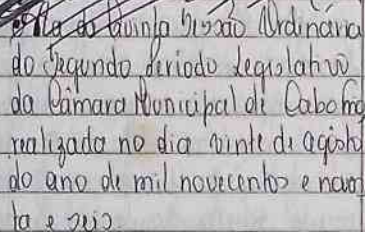 Ata da Quinta Sessão Ordinária
do Segundo Período Legislativo
da Câmara Municipal de Cabo Frio
realizada no dia vinte de agosto
do ano de mil novecentos e noven
ta e seis.